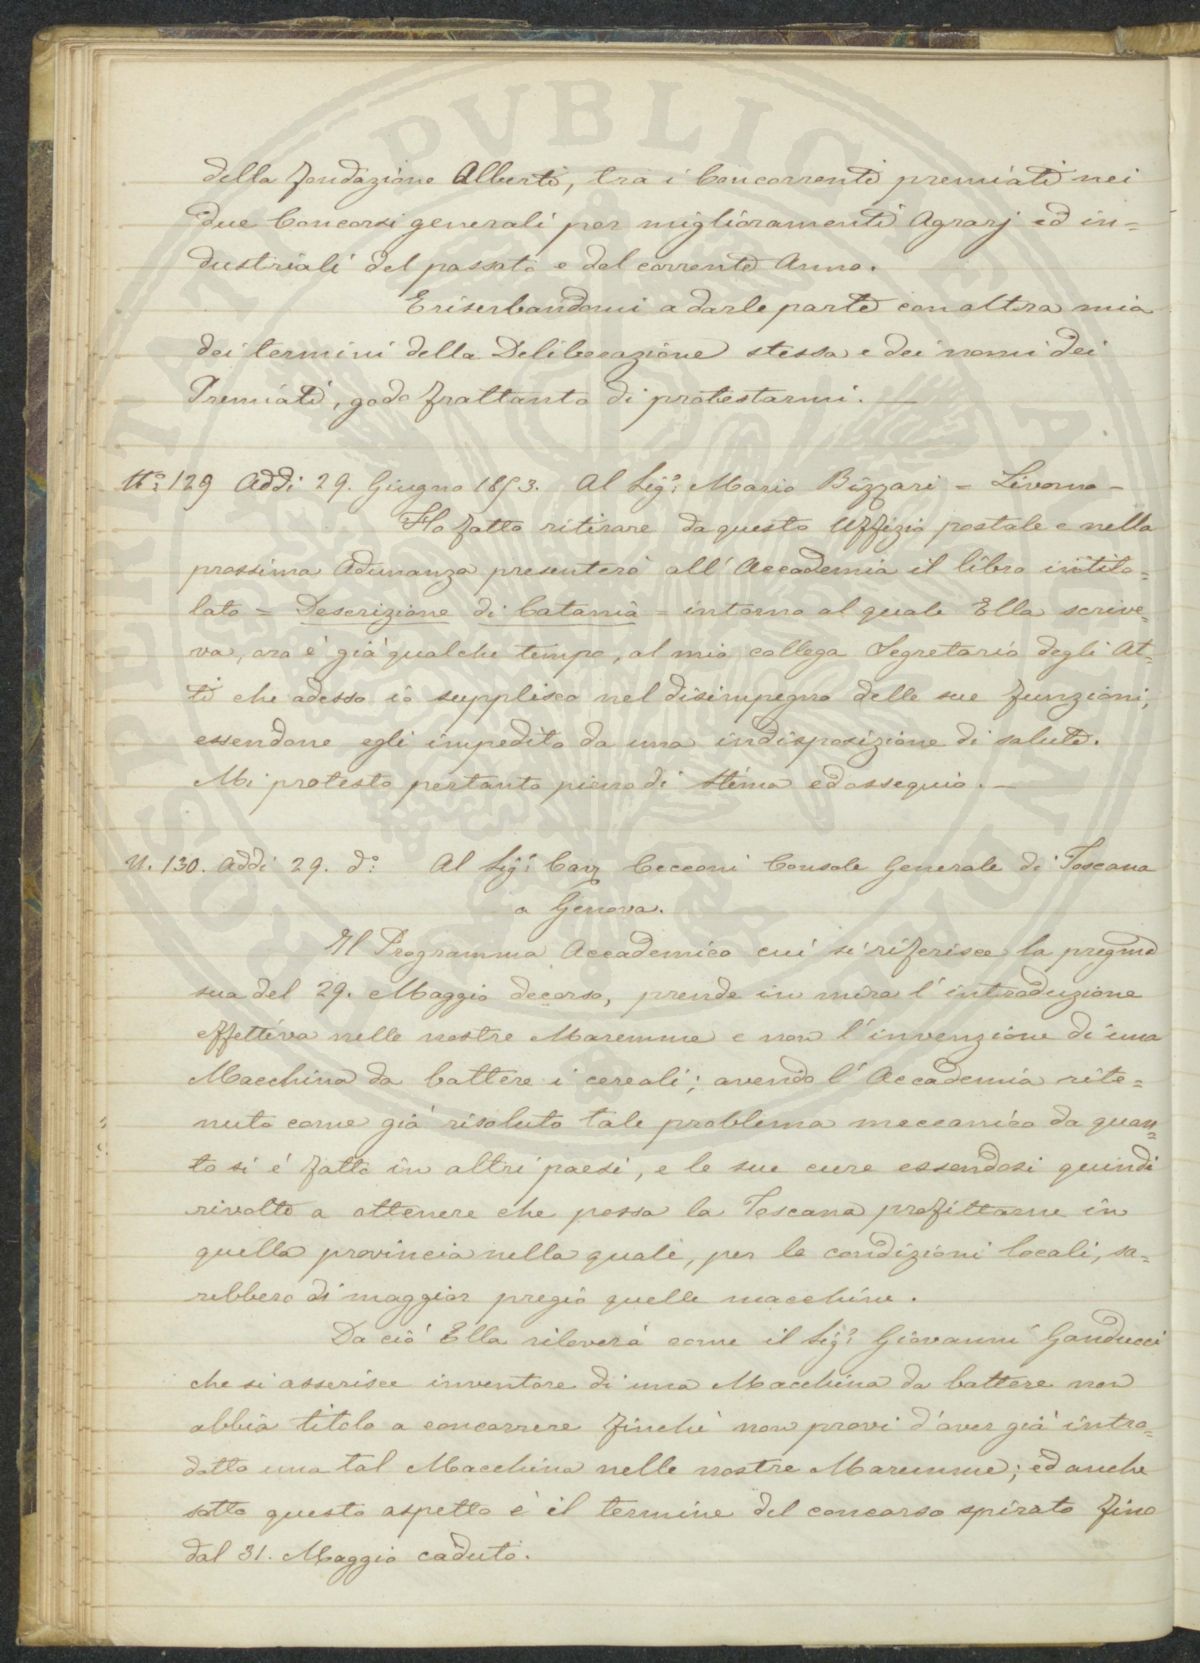 della fondazione Alberti, tra i Concorrenti premiati nei
due Concorsi generali per miglioramenti Agrarj ed in=
dustriali del passato e del corrente Anno.
E riserbandomi a darle parte con altra mia
dei termini della Deliberazione stessa e dei nomi dei
Premiati, godo frattanto di protestarmi. —
N.o 129 Addi 29. Giugno 1853. Al Sig.r Mario Bizzari = Livorno =
Ho fatto ritirare da questo Uffizio postale e nella
prossima Adunanza presenterò all'Accademia il libro intito=
lato = Descrizione di Catania = intorno al quale Ella scrive=
va, ora è già qualche tempo, al mio collega Segretario degli At=
ti che adesso io supplisco nel disimpegno delle sue funzioni,
essendone egli impedito da una indisposizione di salute.
Mi protesto pertanto pieno di stima ed ossequio. —
N. 130. Addi 29. do Al Sig.r Cav. Cecconi Console Generale di Toscana
a Genova.
Il Programma Accademico cui si riferisce la pregma
sua del 29. Maggio decorso, prende in mira l'introduzione
effettiva nelle nostre Maremme e non l'invenzione di una
Macchina da battere i cereali; avendo l'Accademia rite=
nuto come già risoluto tale problema meccanico da quan=
to si è fatto in altri paesi, e le sue cure essendosi quindi
rivolte a ottenere che possa la Toscana profittarne in
quella provincia nella quale, per le condizioni locali, sa=
rebbero di maggior pregio quelle macchine.
Da ciò Ella rileverà come il Sig.r Giovanni Ganducci
che si asserisce inventore di una Macchina da battere non
abbia titolo a concorrere finchè non provi d'aver già intro=
dotto una tal Macchina nelle nostre Maremme; ed anche
sotto questo aspetto è il termine del concorso spirato fino
dal 31. Maggio caduto.